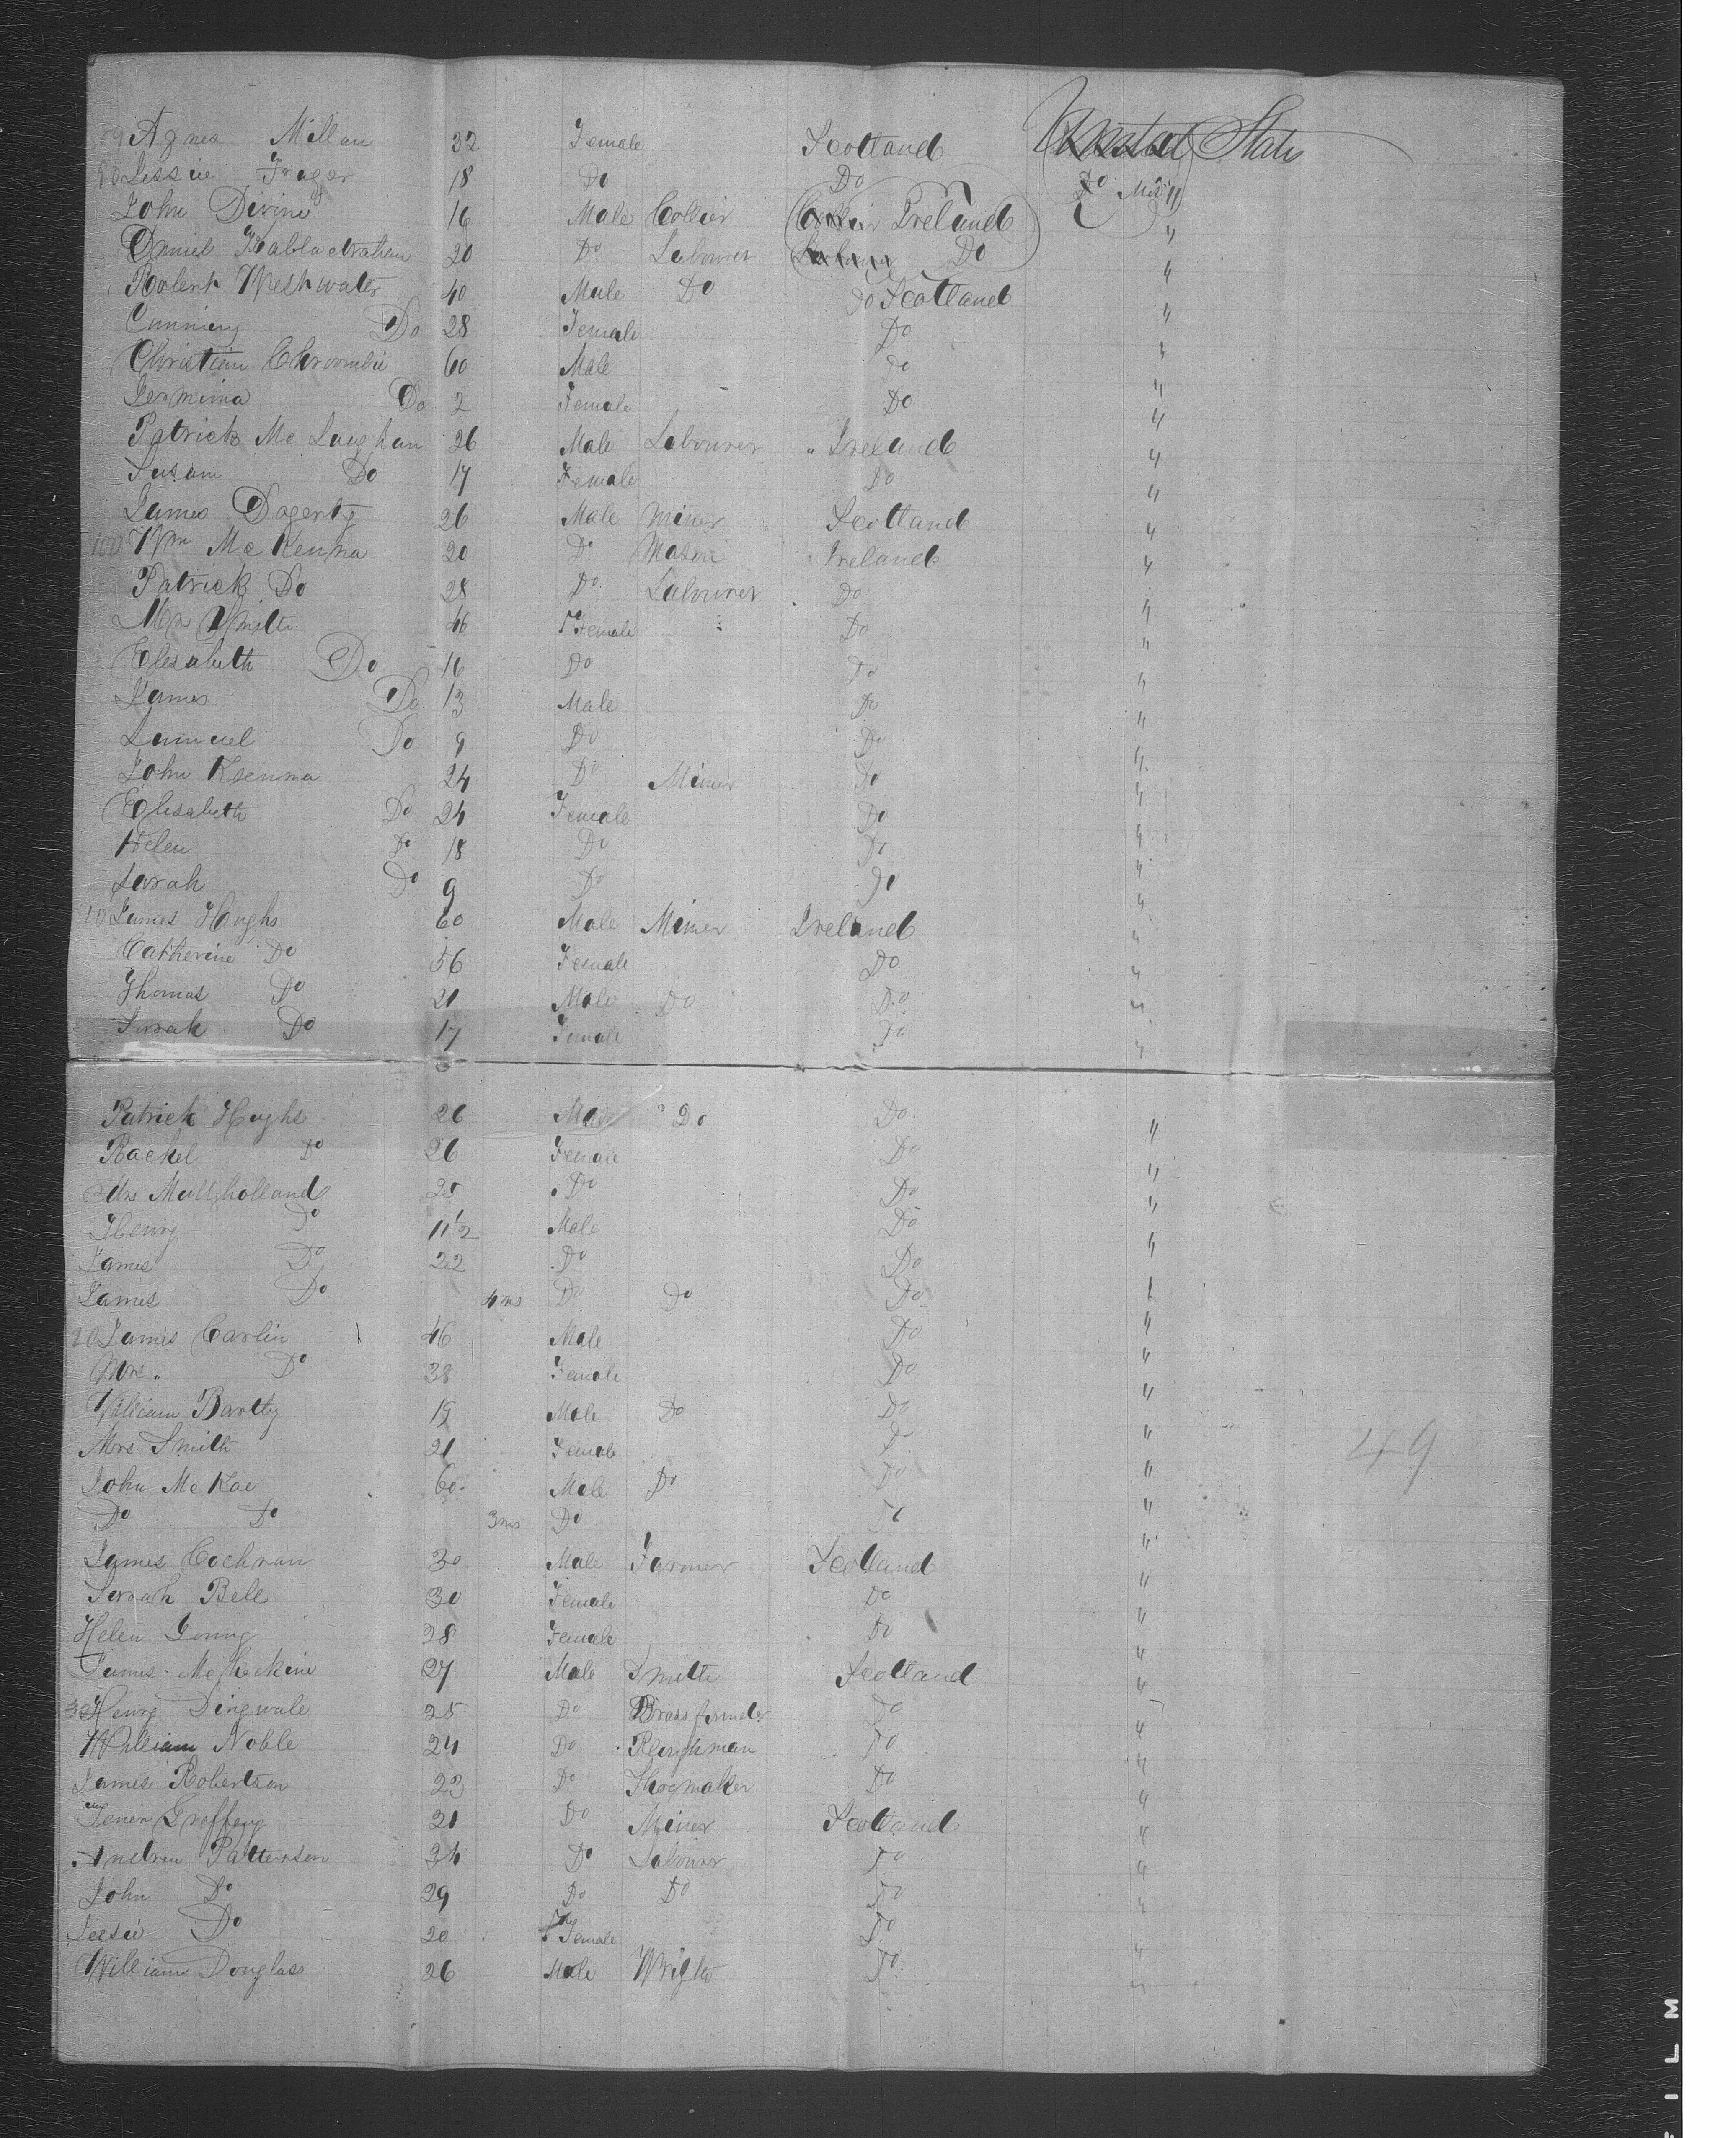 89 Agnes Millan 32 Female Scotland United States
90 Jessie Frager 18 Do Do Do
John Divine 16 Male Collier Collier Ireland "
Daniel 20 Do Labourer Labourer Do "
Robert Weshwater 40 Male Do Do Scotland "
Do 28 Female Do "
Christian Chroombie 60 Male Do "
Jemmima Do 2 Female Do "
Patrick Mc Laughan 26 Male Labourer " Ireland "
Susam Do 17 Female Do "
James Dogerty 26 Male Miner Scotland "
100 Wm McKenna 20 Do Mason Ireland "
Patrick Do 28 Do Labourer Do "
Mrs Smith 46 Female Do "
Elesabeth Do 16 Do Do "
James Do 13 Male Do "
Samuel Do 9 Do Do "
John Kenma 24 Do Miner Do "
Elisabeth Do 24 Female Do "
Helen Do 18 Do Do "
Sarah Do 9 Do Do "
10 James Hughs 60 Male Miner Ireland "
Catherine Do 56 Female Do "
Thomas Do 21 Male Do Do "
Sarah Do 17 Female Do "
Patrick Hughs 26 Male Do Do "
Rachel Do 26 Female Do "
Mrs Mullholland 25 Do Do "
Henry Do 11 1/2 Male Do "
James Do 22 Do Do "
James Do 4 ms Do Do Do "
20 James Carlin 46 Male Do "
Mrs " Do 38 Female Do "
William Bartly 19 Male Do Do "
Mrs Smith 21 Female Do "
John Mc Kae 60 Male Do Do "
Do Do 3 ms Do Do "
James Cochran 30 Male Farmer Scotland "
Sarah Bell 30 Female Do "
Helen Young 28 Female Do "
James McKeckine 27 Male Smith Scotland "
30 Henry Dingwale 25 Do Brass founder Do "
William Noble 24 Do Do "
James Robertson 23 Do Shoemaker Do "
Graffeny 21 Do Miner Scotland "
Andrew Patterson 34 Do Labourer Do "
John Do 29 Do Do Do "
Jessie Do 20 Female Do "
William Douglass 26 Male Wright Do "
49
FILM